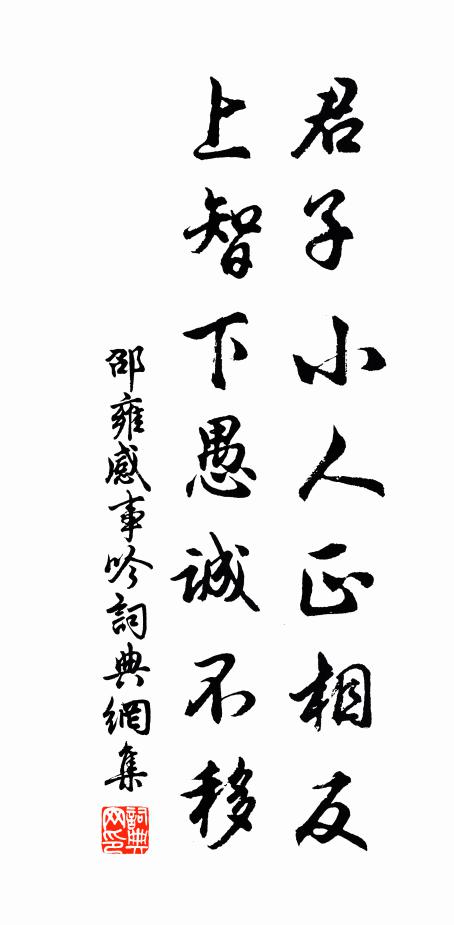 君子小人正相反
上智下愚誠不移
邵雍感事吟詞典網集
詞典網印